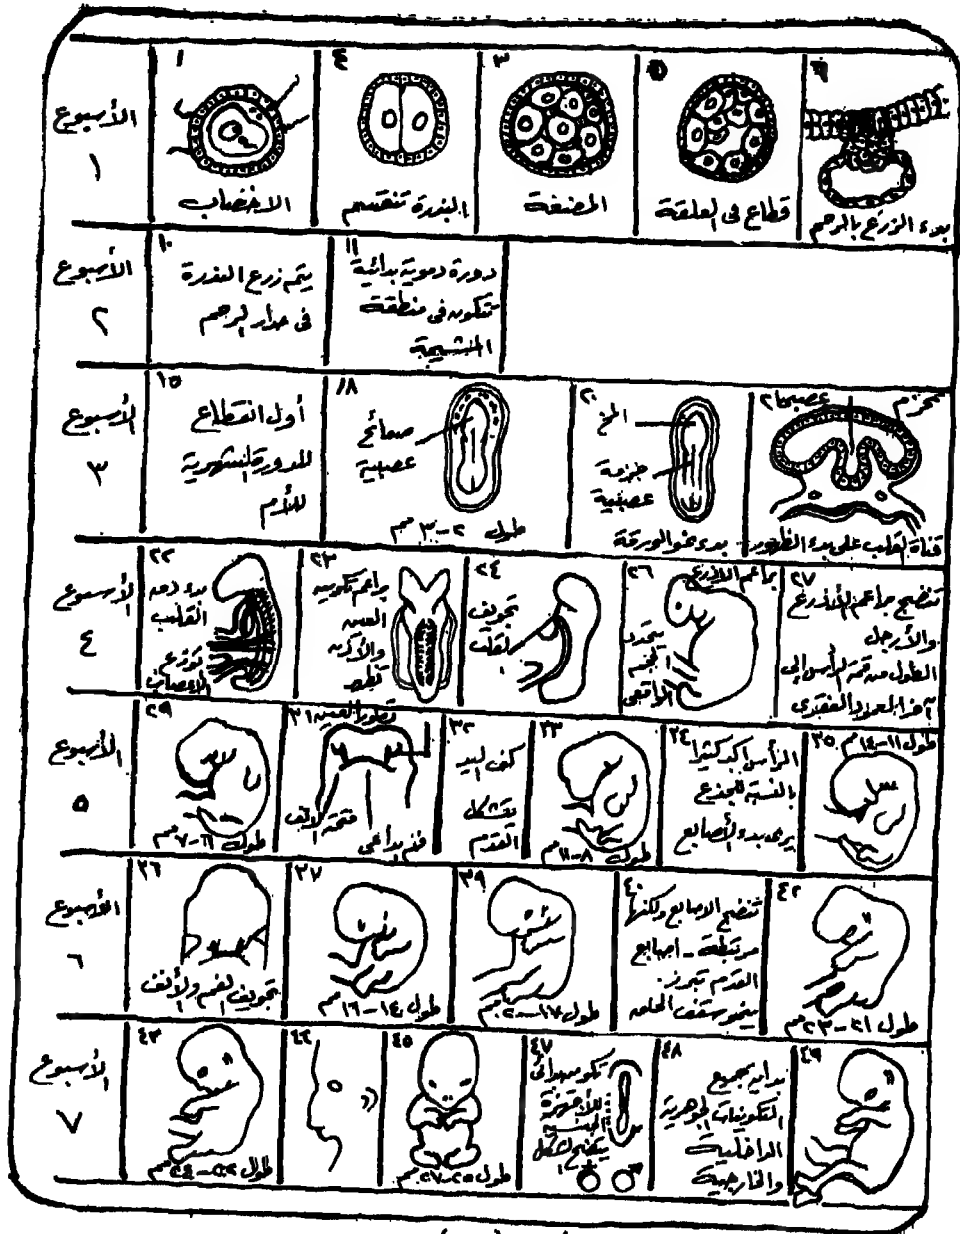 الأسبوع
١
١
الاخصاب
٤
البذرة تنقسم
٣
المضغة
٥
قطاع فى العلقة
٦
بدء الزرع بالرحم
الأسبوع
٢
١٠
يتم زرع البذرة
فى جدار الرحم
١١
دورة دموية بدائية
تتكون فى منطقة
المشيمة
الأسبوع
٣
١٥
أول انقطاع
للدورة الشهرية
للأم
١٨
صفائح
عصبية
طول ٢-٣ مم
٢٠
المخ
حزمة
عصبية
بدء نمو الورقة
٢١
عصبية
حزم
قناة القلب على بدء الظهور
الأسبوع
٤
٢٢
بدء دق
القلب
توزع
الاعصاب
٢٣
براعم تكوين
العين
والأذن
تظهر
٢٤
تجويف
القلب
٢٦
براعم الاذرع
يتحدد
الجنين
٢٧
تتضح براعم الأذرع
والأرجل
الطول من قمة الرأس إلى
آخر العمود الفقرى
الأسبوع
٥
٢٩
طول ٦-٧ مم
٣١
تطور العين
فتحة الانف
فم بدائى
٣٢
كف اليد
يتشكل
القدم
٣٣
طول ٨-١١ مم
٣٤
الرأس اكبر كثيرا
بالنسبة للجذع
يرى بدء الأصابع
٣٥
طول ١١-١٤ مم
الأسبوع
٦
٣٦
تجويف الفم والأنف
٣٧
طول ١٤-١٦ مم
٣٩
طول ١٧-٢٠ مم
٤٠
تتضح الاصابع ولكنها
مرتبطة - اصابع
القدم تبرز.
ينمو سقف الحلق
٤٢
طول ٢١-٢٣ مم
الأسبوع
٧
٤٣
طول ٢٢-٢٤ مم
٤٤
٤٥
طول ٢٥-٢٧ مم
٤٧
تكوين
للأجهزة
الجنسية
يتضح الشكل
٤٨
بداية جميع
التكوينات الجوهرية
الداخلية
والخارجية
٤٩